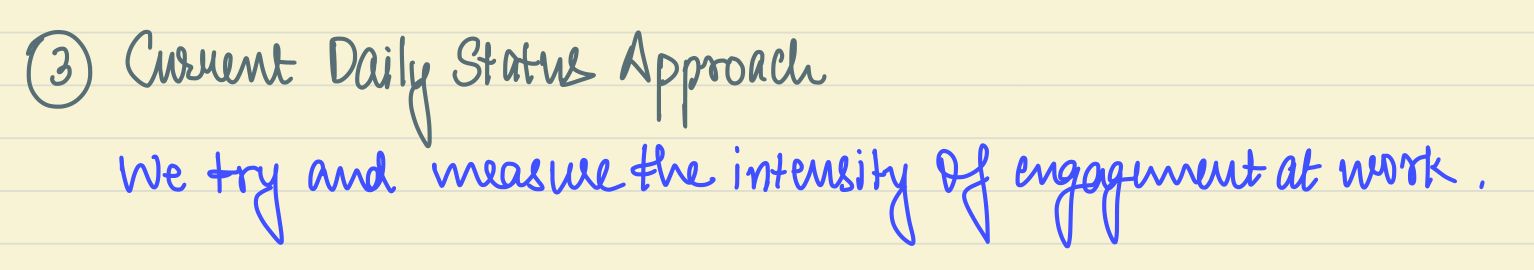 ③ Current Daily Status Approach
We try and measure the intensity of engagement at work.